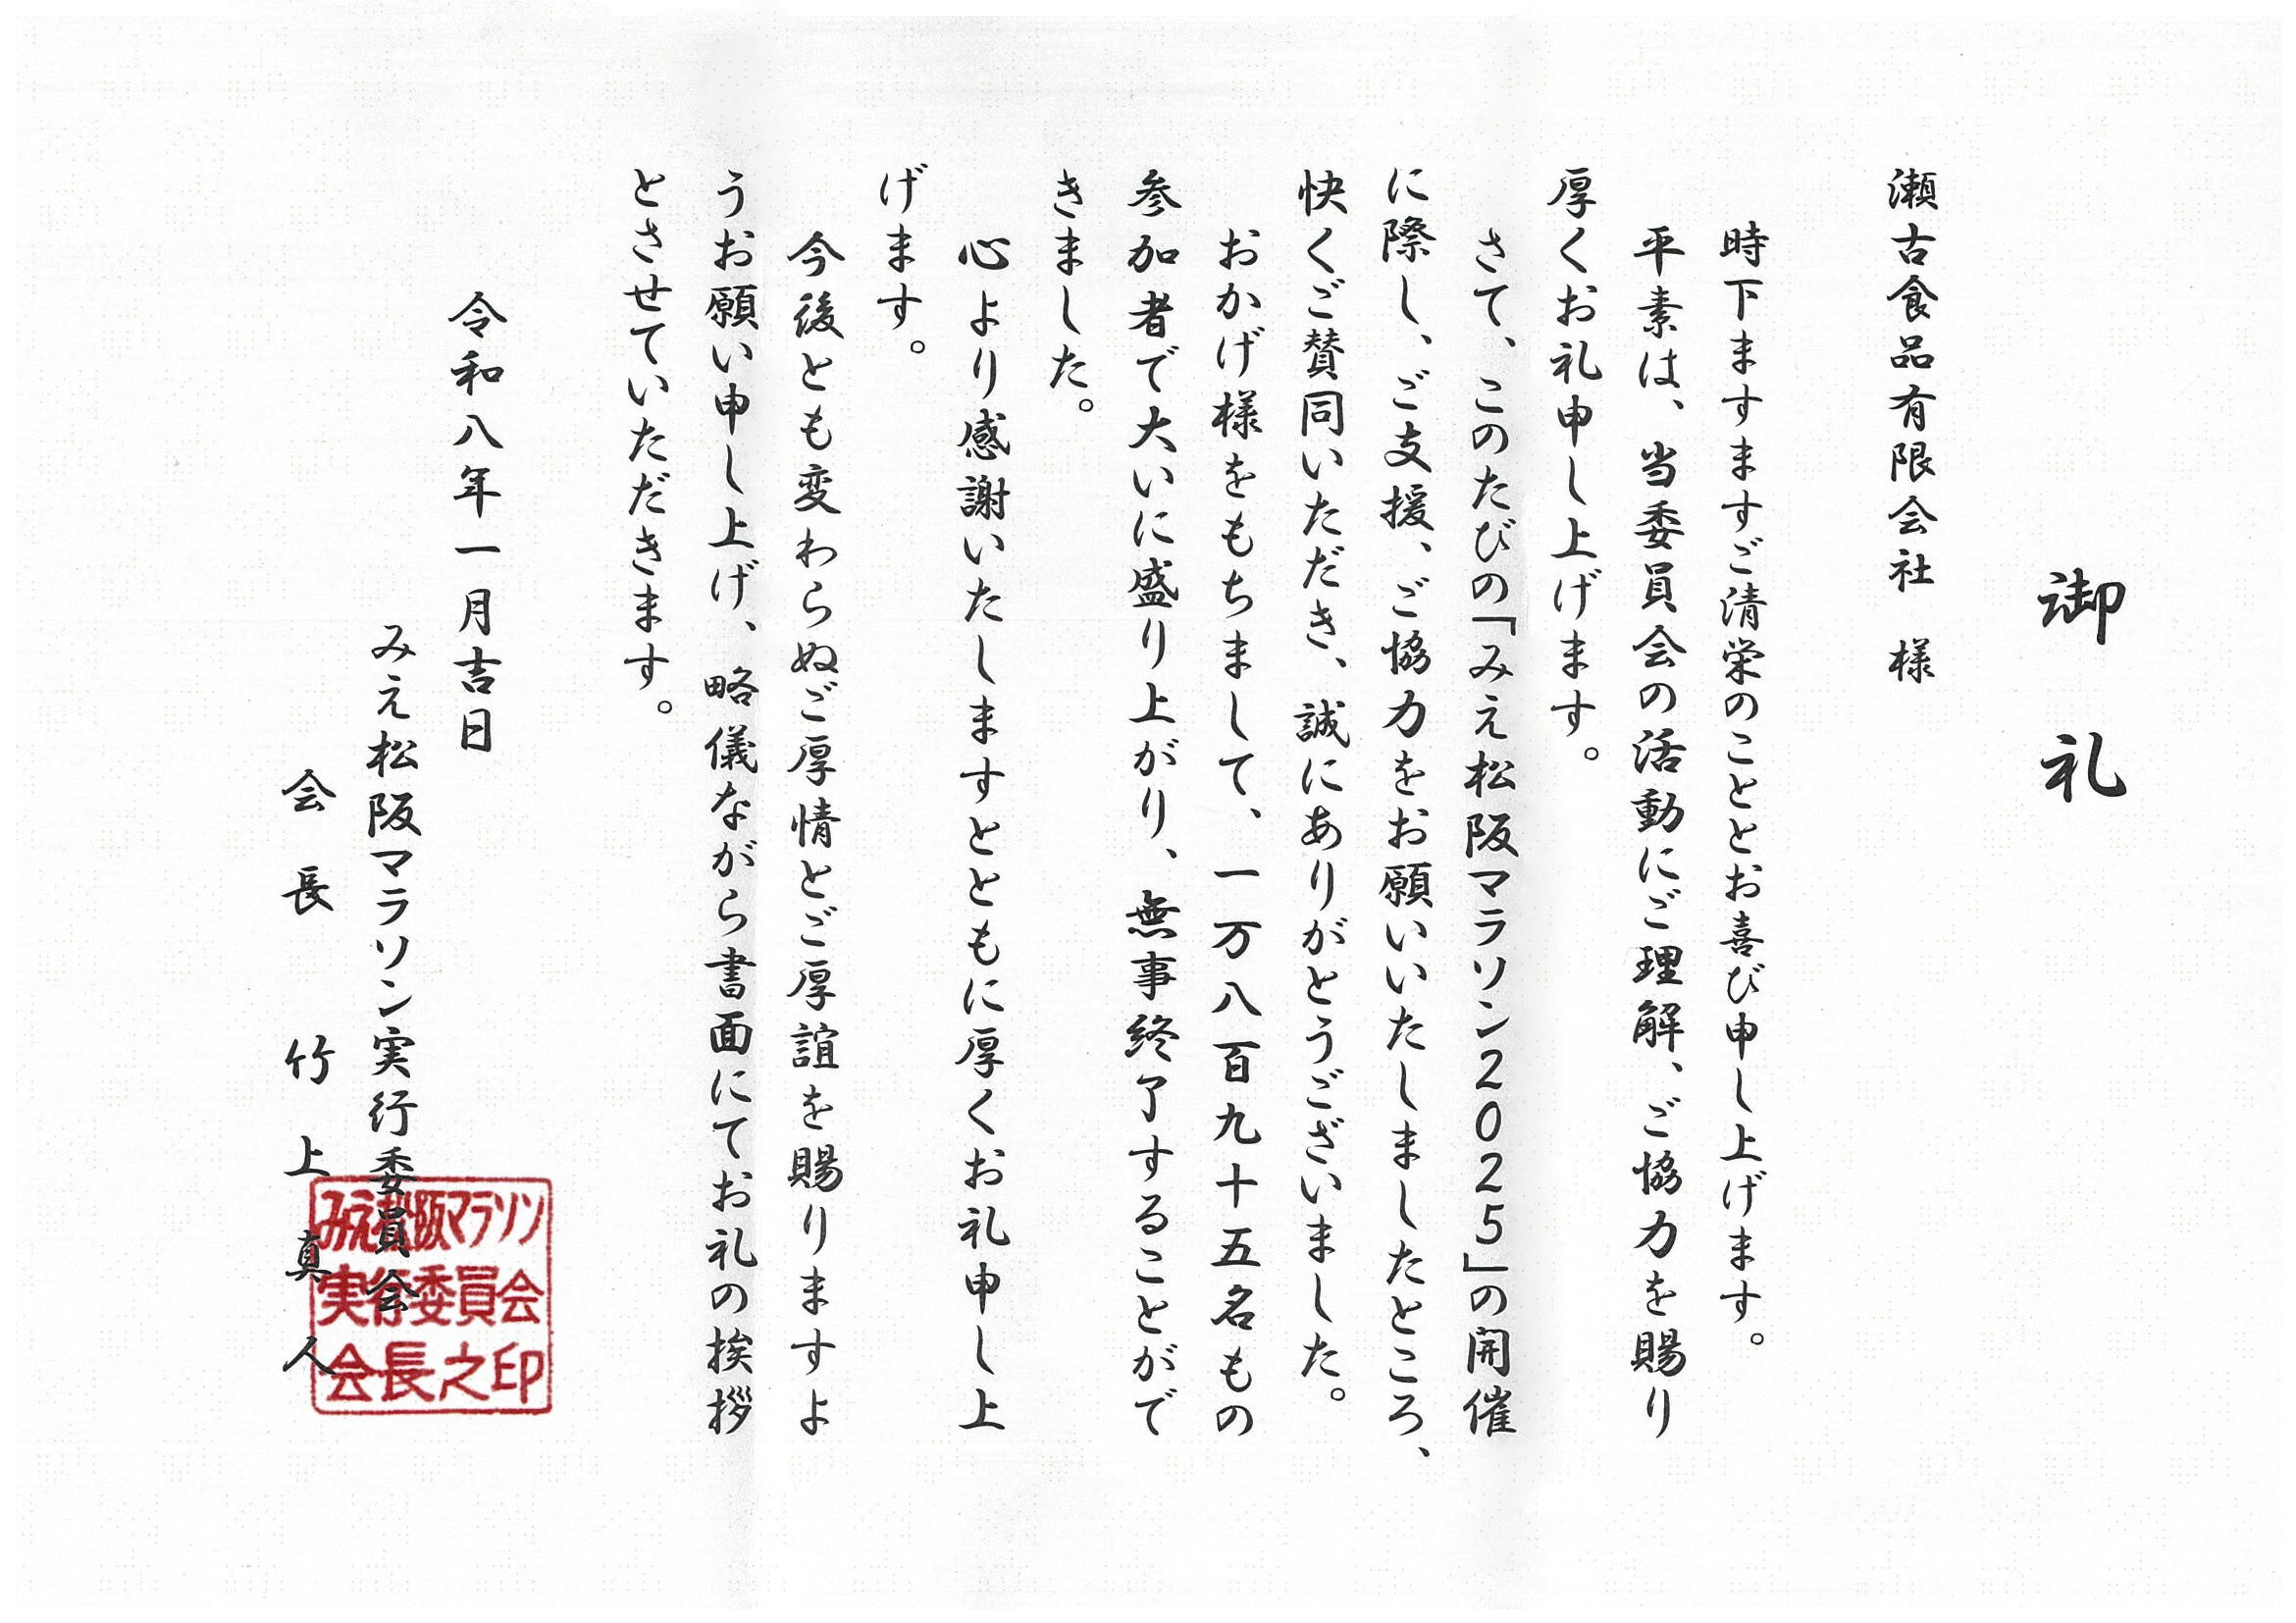 御礼
瀬古食品有限会社 様
時下ますますご清栄のこととお喜び申し上げます。
平素は、当委員会の活動にご理解、ご協力を賜り
厚くお礼申し上げます。
さて、このたびの「みえ松阪マラソン2025」の開催
に際し、ご支援、ご協力をお願いいたしましたところ、
快くご賛同いただき、誠にありがとうございました。
おかげ様をもちまして、一万八百九十五名もの
参加者で大いに盛り上がり、無事終了することがで
きました。
心より感謝いたしますとともに厚くお礼申し上
げます。
今後とも変わらぬご厚情とご厚誼を賜りますよ
うお願い申し上げ、略儀ながら書面にてお礼の挨拶
とさせていただきます。
令和八年一月吉日
みえ松阪マラソン実行委員会
会長 竹上真人
みえ松阪マラソン
実行委員会
会長之印